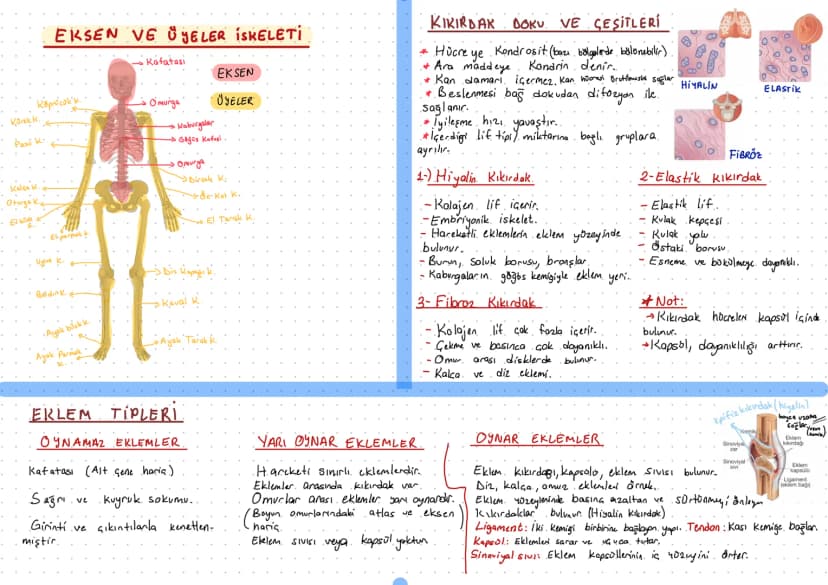 EKSEN VE ÜYELER İSKELETİ
Kafatası
EKSEN
ÜYELER
Köprücük k.
Omurga
Kürek k.
Kaburgalar
Göğüs Kafesi
Pazu k.
Omurga
Dirsek k.
Kalça k.
Ön Kol k.
Oturga k.
El bilek k.
El Tarak k.
El parmak k.
Uyluk k.
Diz Kapağı k.
Baldır k.
Kaval k.
Ayak bilek k.
Ayak Tarak k.
Ayak Parmak k.
KIKIRDAK DOKU VE ÇEŞİTLERİ
* Hücreye Kondrosit (bazı bölgelerde bölünebilir)
* Ara maddeye Kondrin denir.
* Kan damarı içermez.
* Beslenmesi bağ dokudan difüzyon ile
sağlanır.
* İyileşme hızı yavaştır.
* İçerdiği lif tipi/miktarına bağlı gruplara
ayrılır.
HİYALİN
ELASTİK
FİBRÖZ
1-) Hiyalin Kıkırdak
- Kolajen lif içerir.
- Embriyonik iskelet.
- Hareketli eklemlerin eklem yüzeyinde
bulunur.
- Burun, soluk borusu, bronşlar
- Kaburgaların göğüs kemiğiyle eklem yeri.
2-Elastik Kıkırdak
- Elastik lif.
- Kulak kepçesi
- Kulak yolu
- Östaki borusu
- Esneme ve bükülmeye dayanıklı.
3- Fibröz Kıkırdak
- Kolajen lif çok fazla içerir.
- Çekme ve basınca çok dayanıklı.
- Omur arası disklerde bulunur.
- Kalça ve diz eklemi.
* Not:
→ Kıkırdak hücreleri kapsül içinde
bulunur.
→ Kapsül, dayanıklılığı arttırır.
EKLEM TİPLERİ
OYNAMAZ EKLEMLER
Kafatası (Alt çene hariç)
Sağrı ve kuyruk sokumu.
Girinti ve çıkıntılarla kenetlen-
miştir.
YARI OYNAR EKLEMLER
Hareketi sınırlı eklemlerdir.
Eklemler arasında kıkırdak var.
Omurlar arası eklemler yarı oynardır.
(Boyun omurlarındaki atlas ve eksen
hariç)
Eklem sıvısı veya kapsül yoktur.
OYNAR EKLEMLER
Eklem kıkırdağı, kapsülü, eklem sıvısı bulunur.
Diz, kalça, omuz eklemleri örnek.
Eklem yüzeylerinde basıncı azaltan ve sürtünmeyi önleyen
kıkırdaklar bulunur (Hiyalin kıkırdak)
Ligament: İki kemiği birbirine bağlayan yapı. Tendon: Kası kemiğe bağlar.
Kapsül: Eklemleri sarar ve tutar.
Sinoviyal sıvı: Eklem kapsüllerinin iç yüzeyini örter.
epifiz kıkırdak (hiyalin)
boyca uzama
sağlar.
Kemik
Sinoviyal
zar
Sinoviyal
sıvı
Eklem
kıkırdağı
Eklem
kapsülü
Ligament
(eklem bağı)